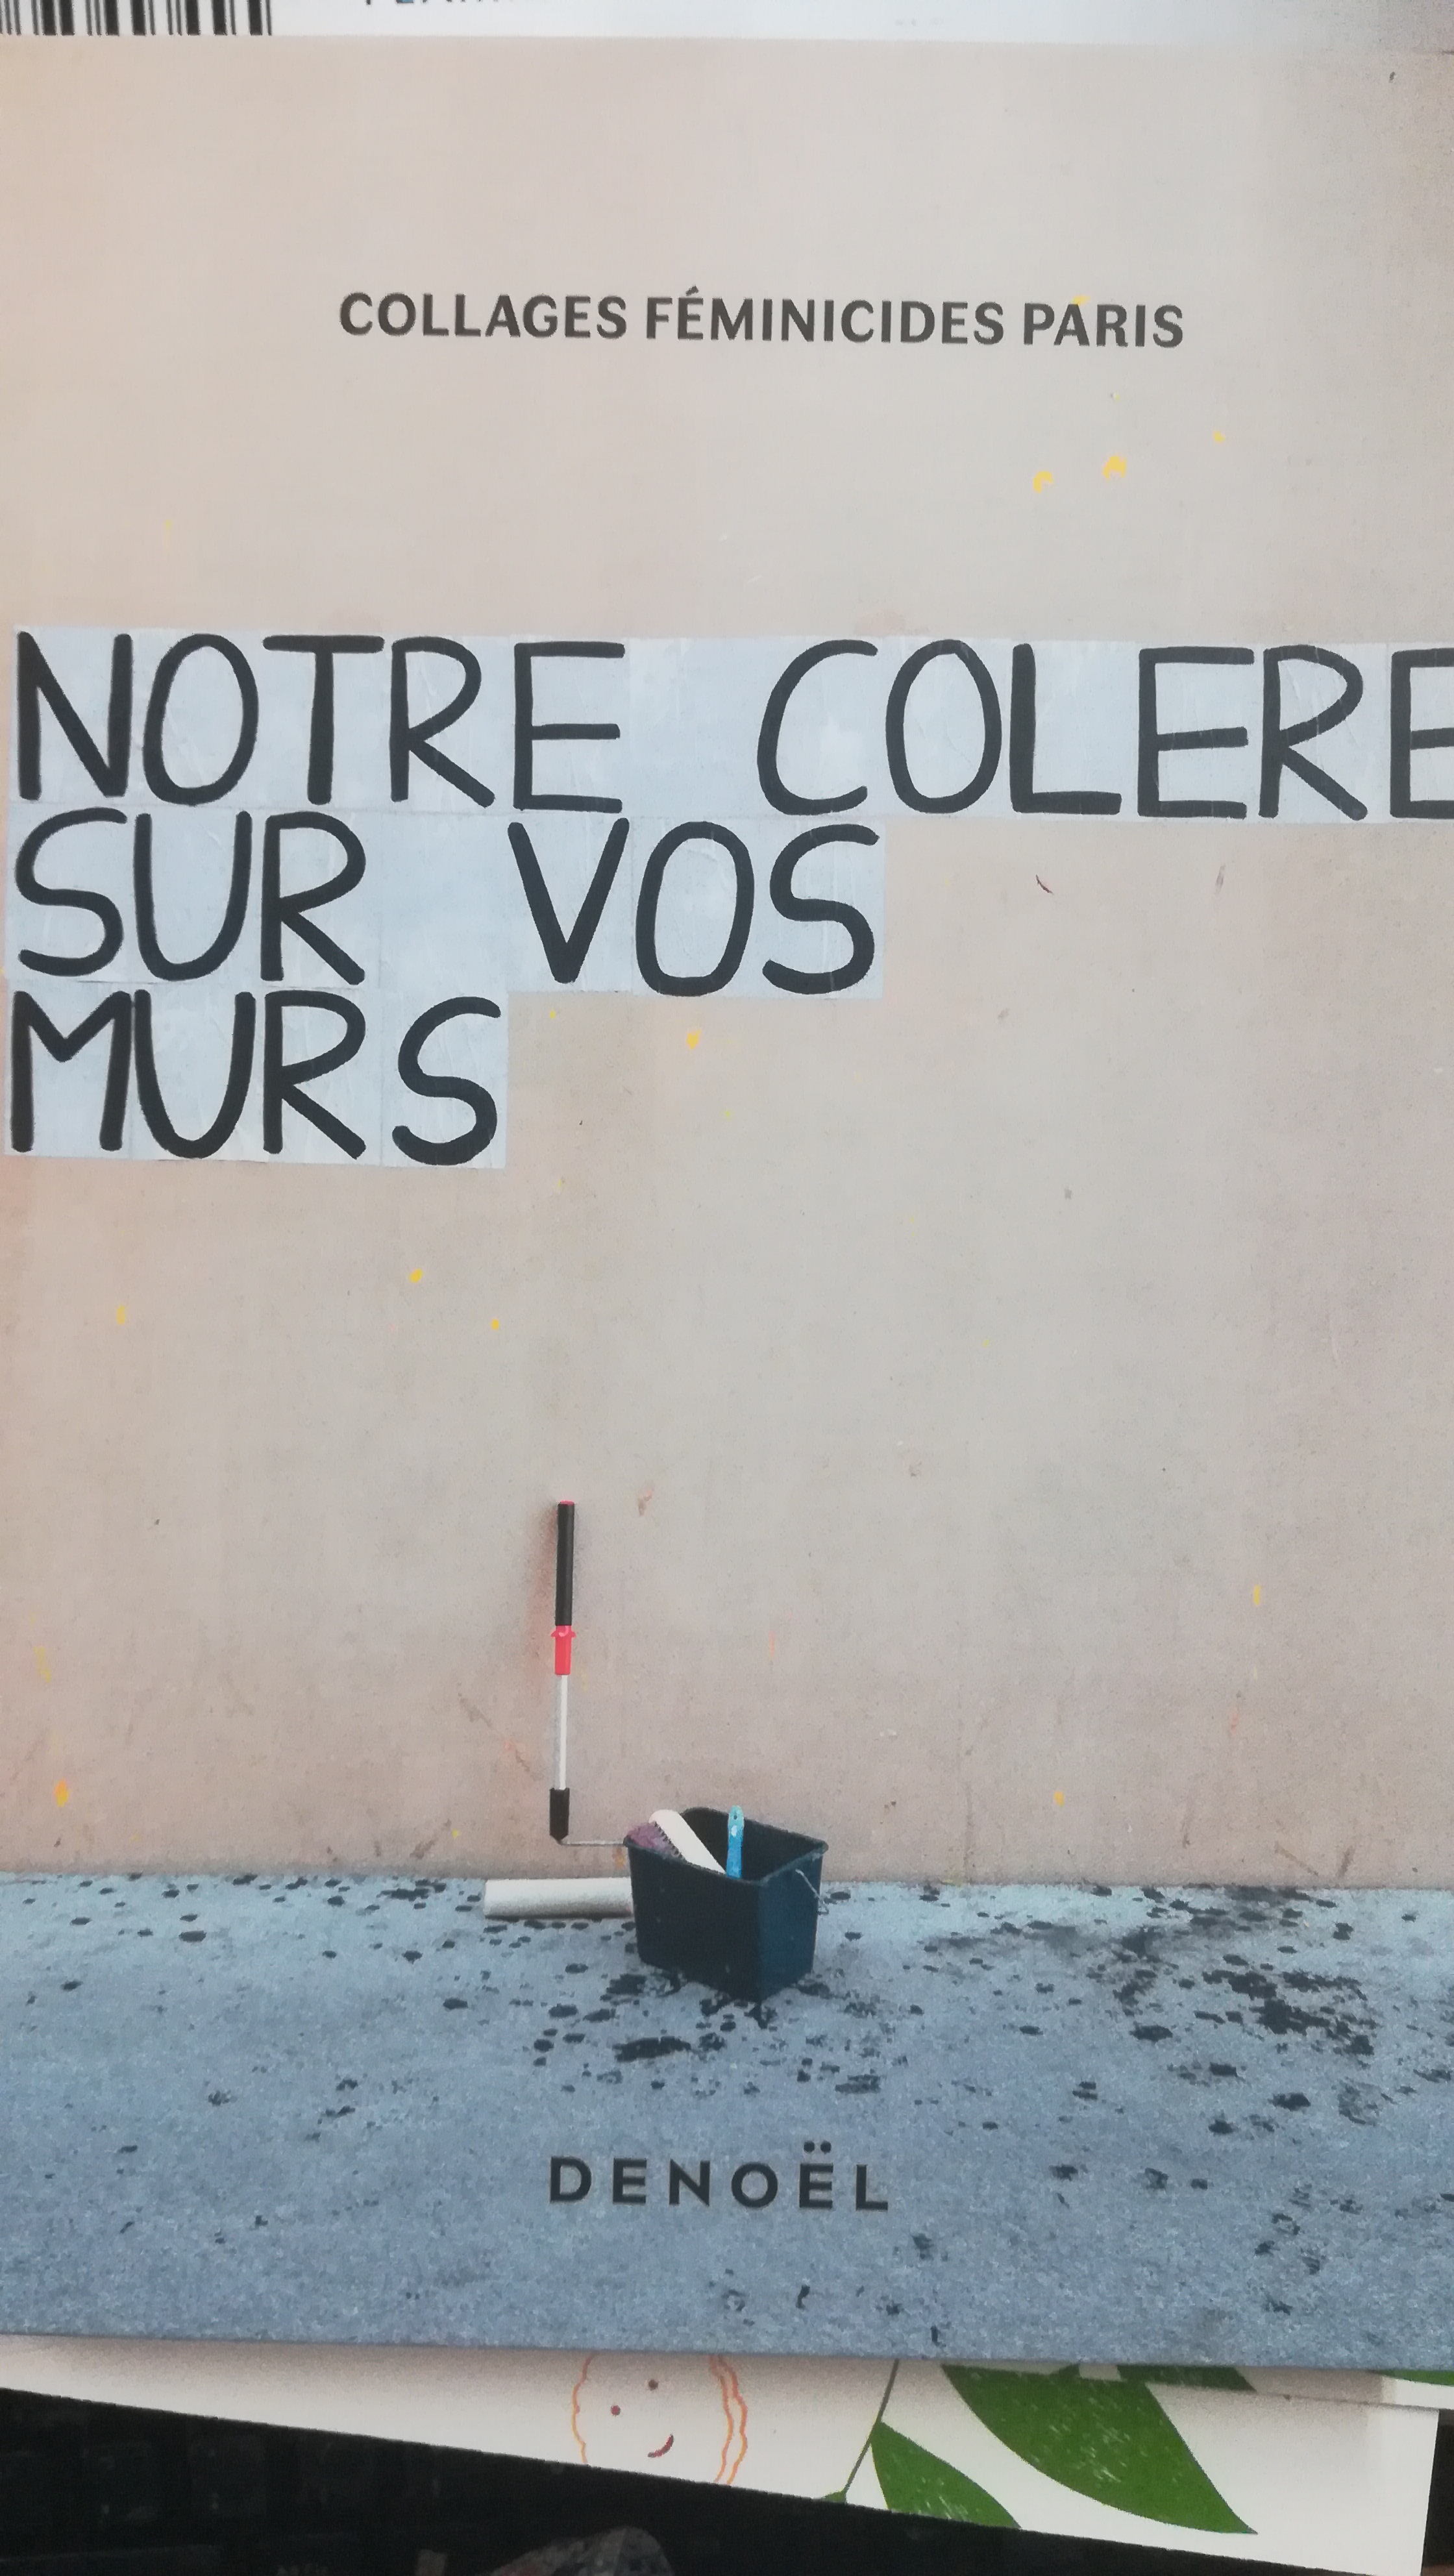 COLLAGES FÉMINICIDES PARIS
NOTRE COLERE
SUR VOS
MURS
DENOËL